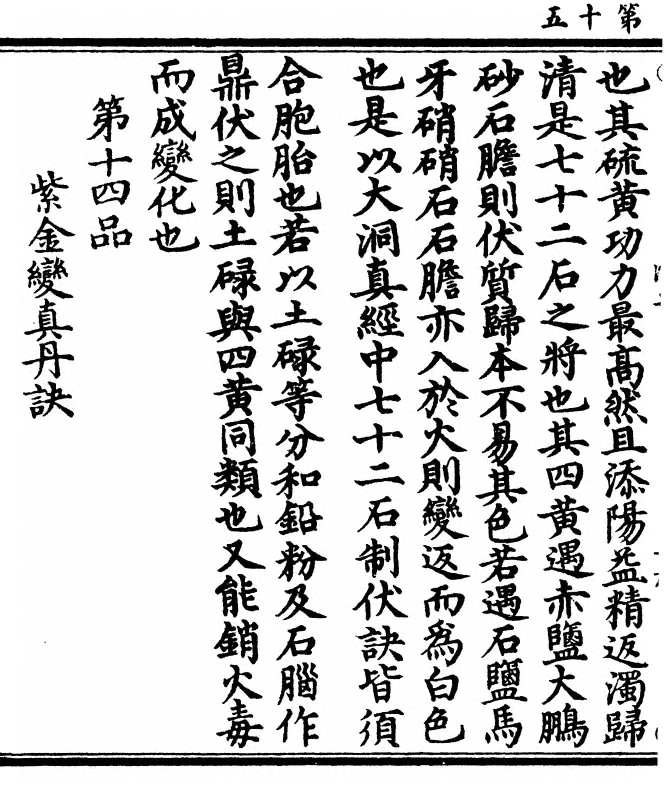 第十五
也其硫黄功力最髙然且添陽益精返濁歸
清是七十二石之將也其四黄遇赤鹽大鵬
砂石膽則伏質歸本不易其色若遇石鹽馬
牙硝硝石石膽亦入於火則變返而為白色
也是以大洞真經中七十二石制伏訣皆須
合胞胎也若以土碌等分和鉛粉及石腦作
鼎伏之則土碌與四黄同類也又能銷火毒
而成變化也
第十四品
紫金變真丹訣